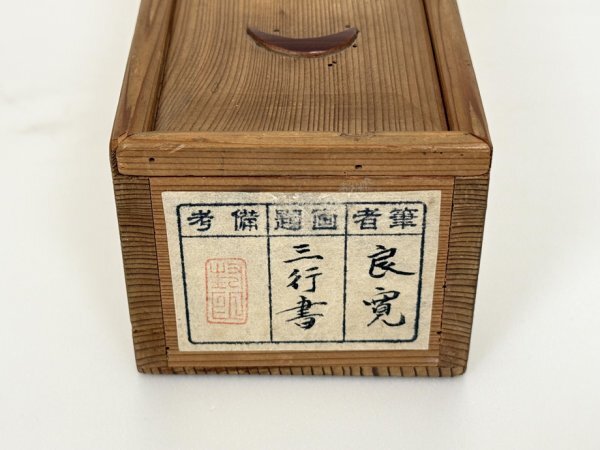 筆者
画題
備考
良寛
三行書